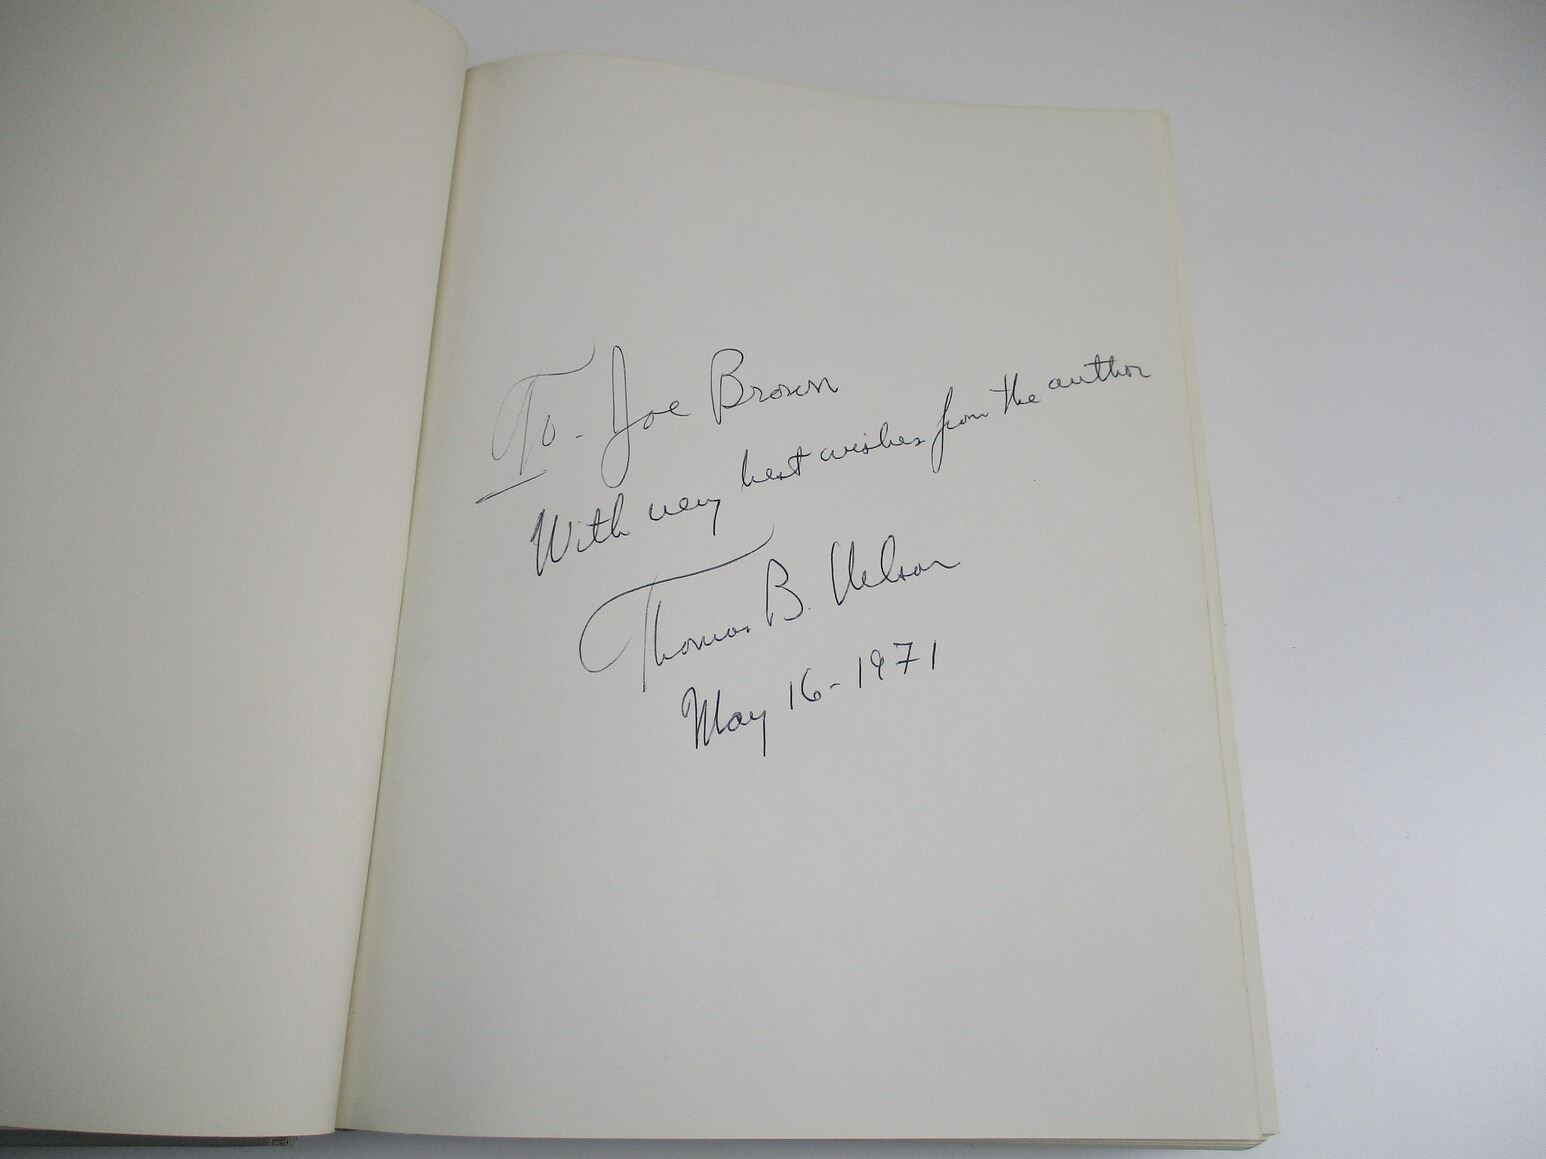 To - Joe Brown
With very best wishes from the author
Thomas B. Nelson
May 16-1971